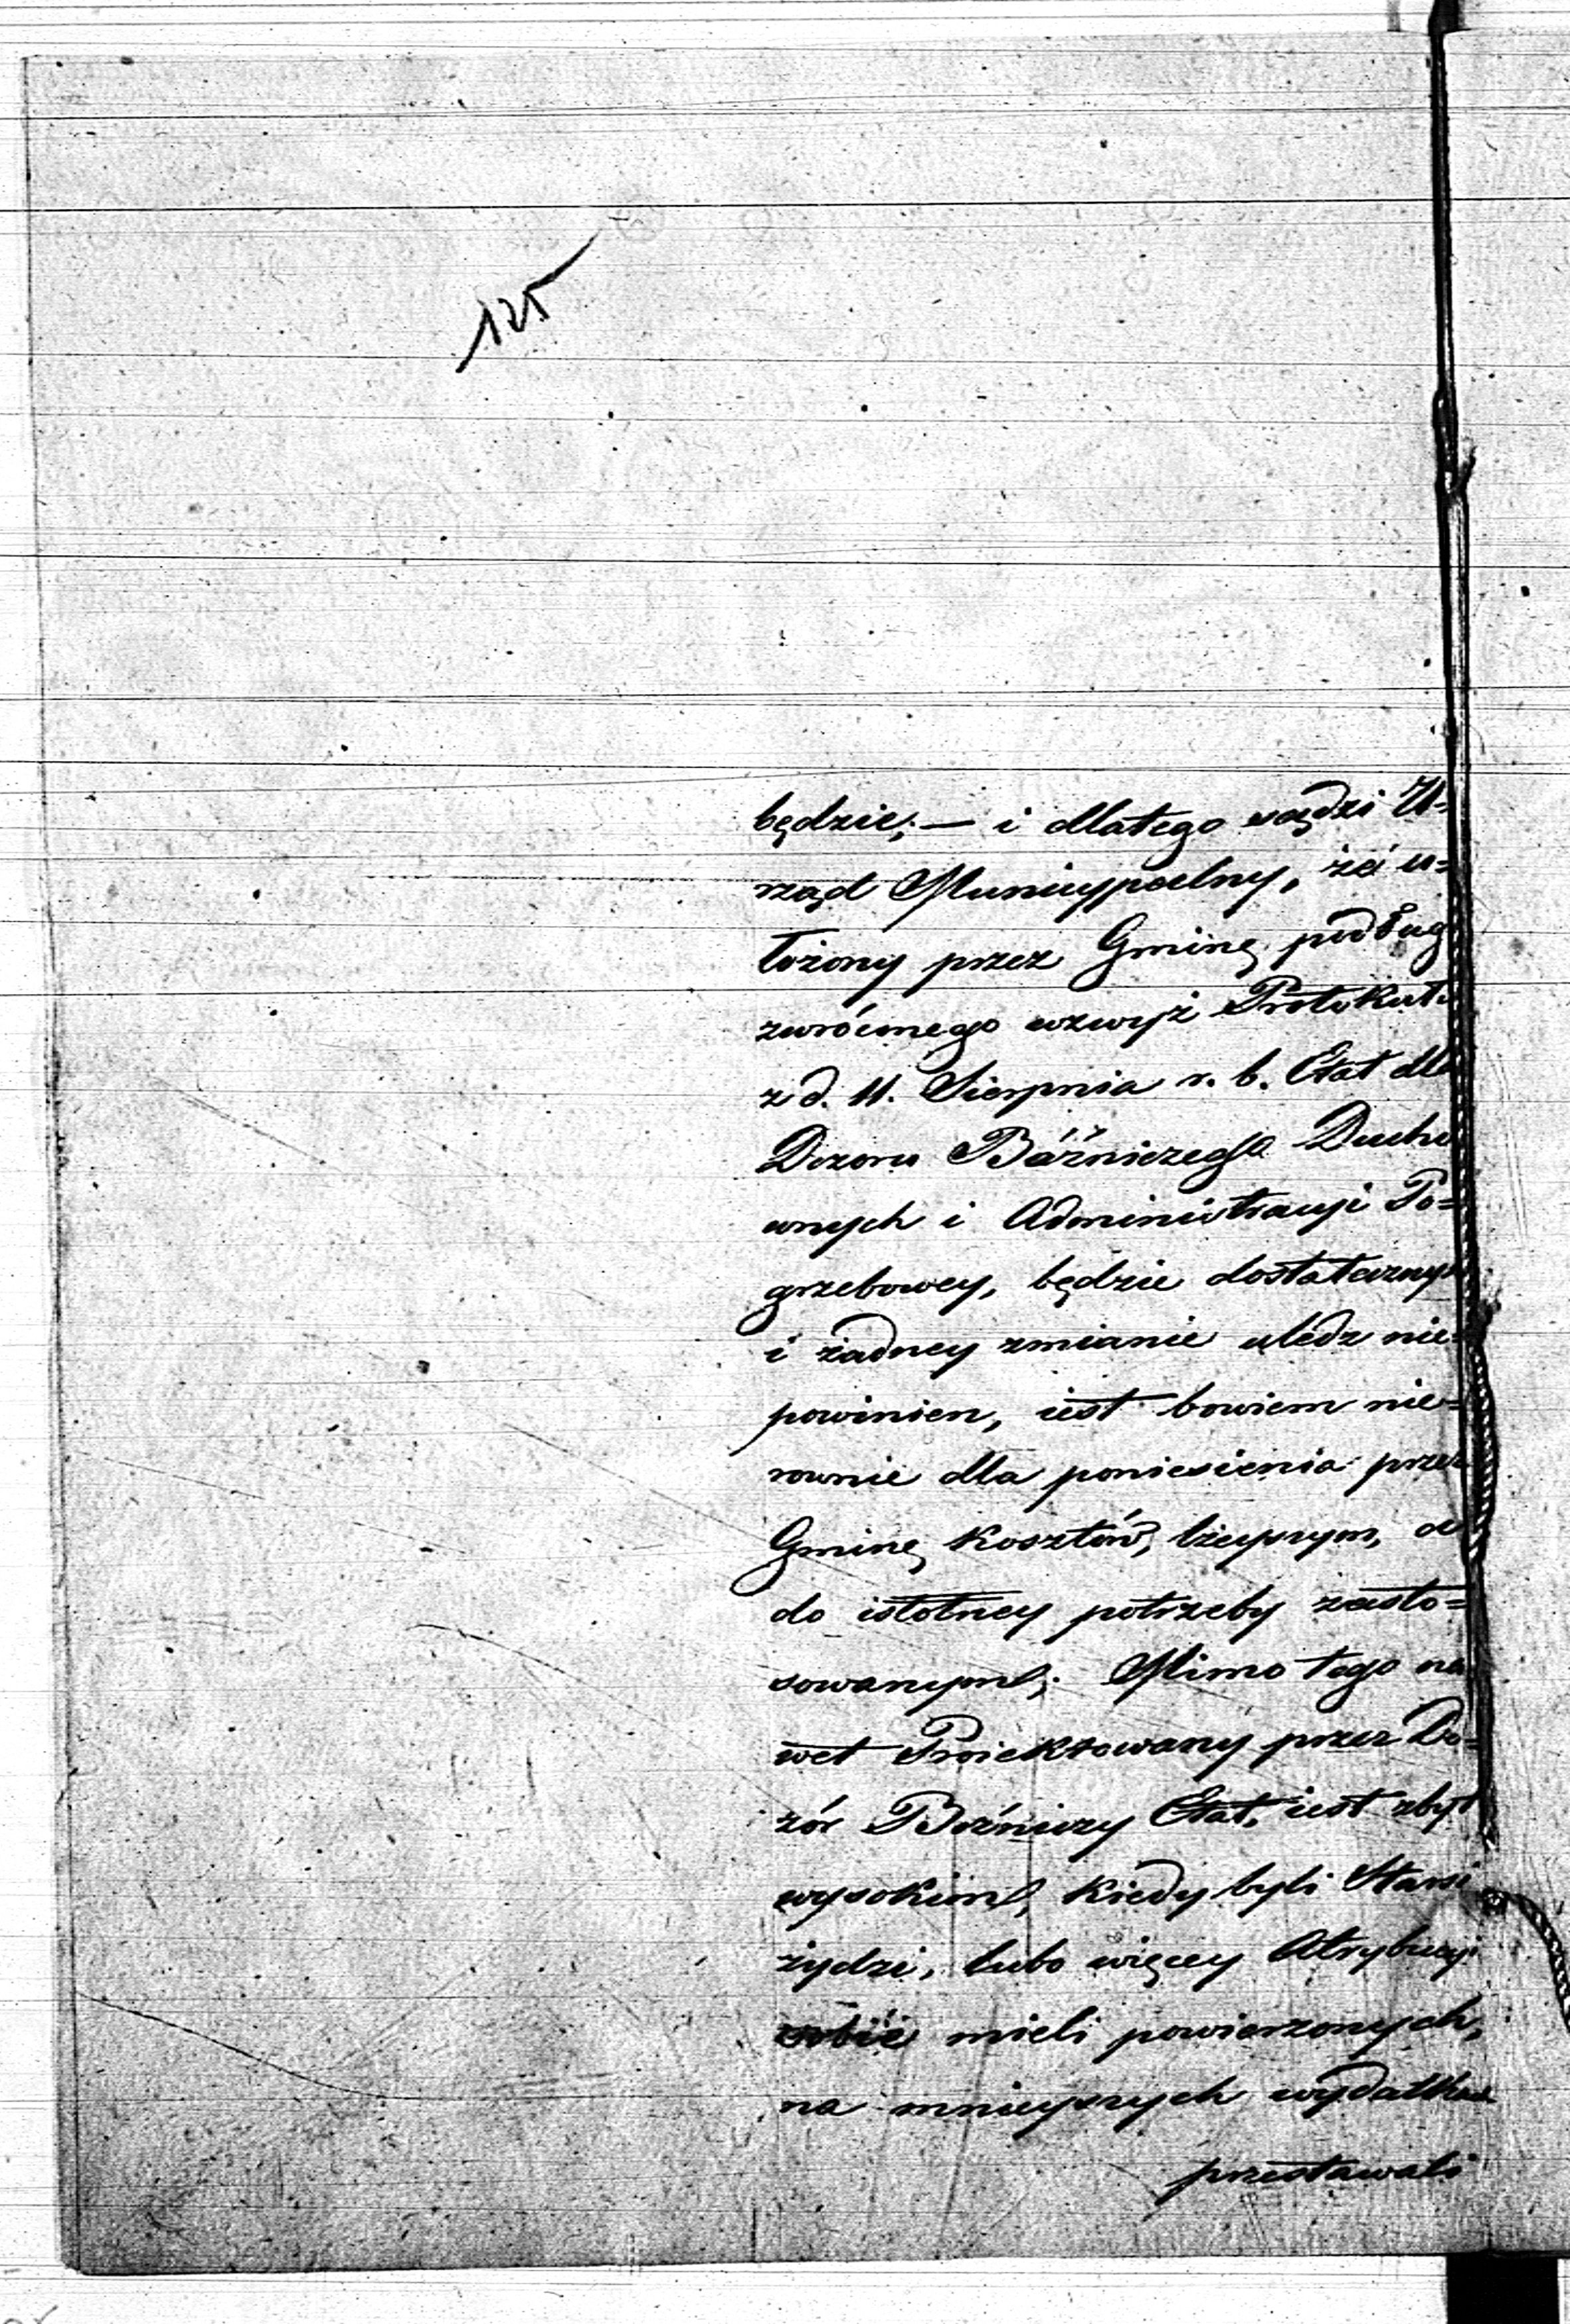 125
będzie; — i dlatego sądzi U-
rząd Municypalny, że u-
łożony przez Gminę podług
zwróconego wzwyż Protokułu
z d. 11. Sierpnia r. b. Etat dla
Dozoru Bóżniczego Ducho
wnych i Administracyi Po=
grzebowey, będzie dostatecznym
i żadney zmianie uledz nie-
powinien, iest bowiem nie=
rownie dla poniesienia przez
Gminę kosztów, lżeyszym, a
do istotney potrzeby zasto=
sowanym; Mimo tego na
wet Proiektowany przez Do=
zór Bóżniczy Etat, iest zbyt
wysokim, kiedy byli Starsi
żydzi, lubo więcey Atrybucyi
sobie mieli powierzonych,
na mnieyszych wydatkach
przestawali